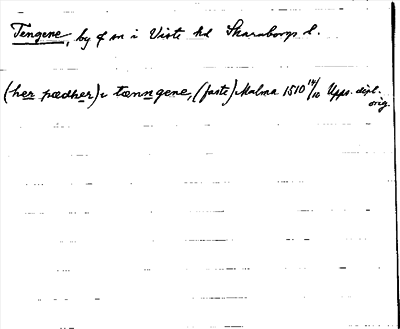 Tengene, by o sn i Viste hd Skaraborgs l.
(her pædher) i tænngene, (faste) Malma 1510 14/10 Upps. dipl. orig.